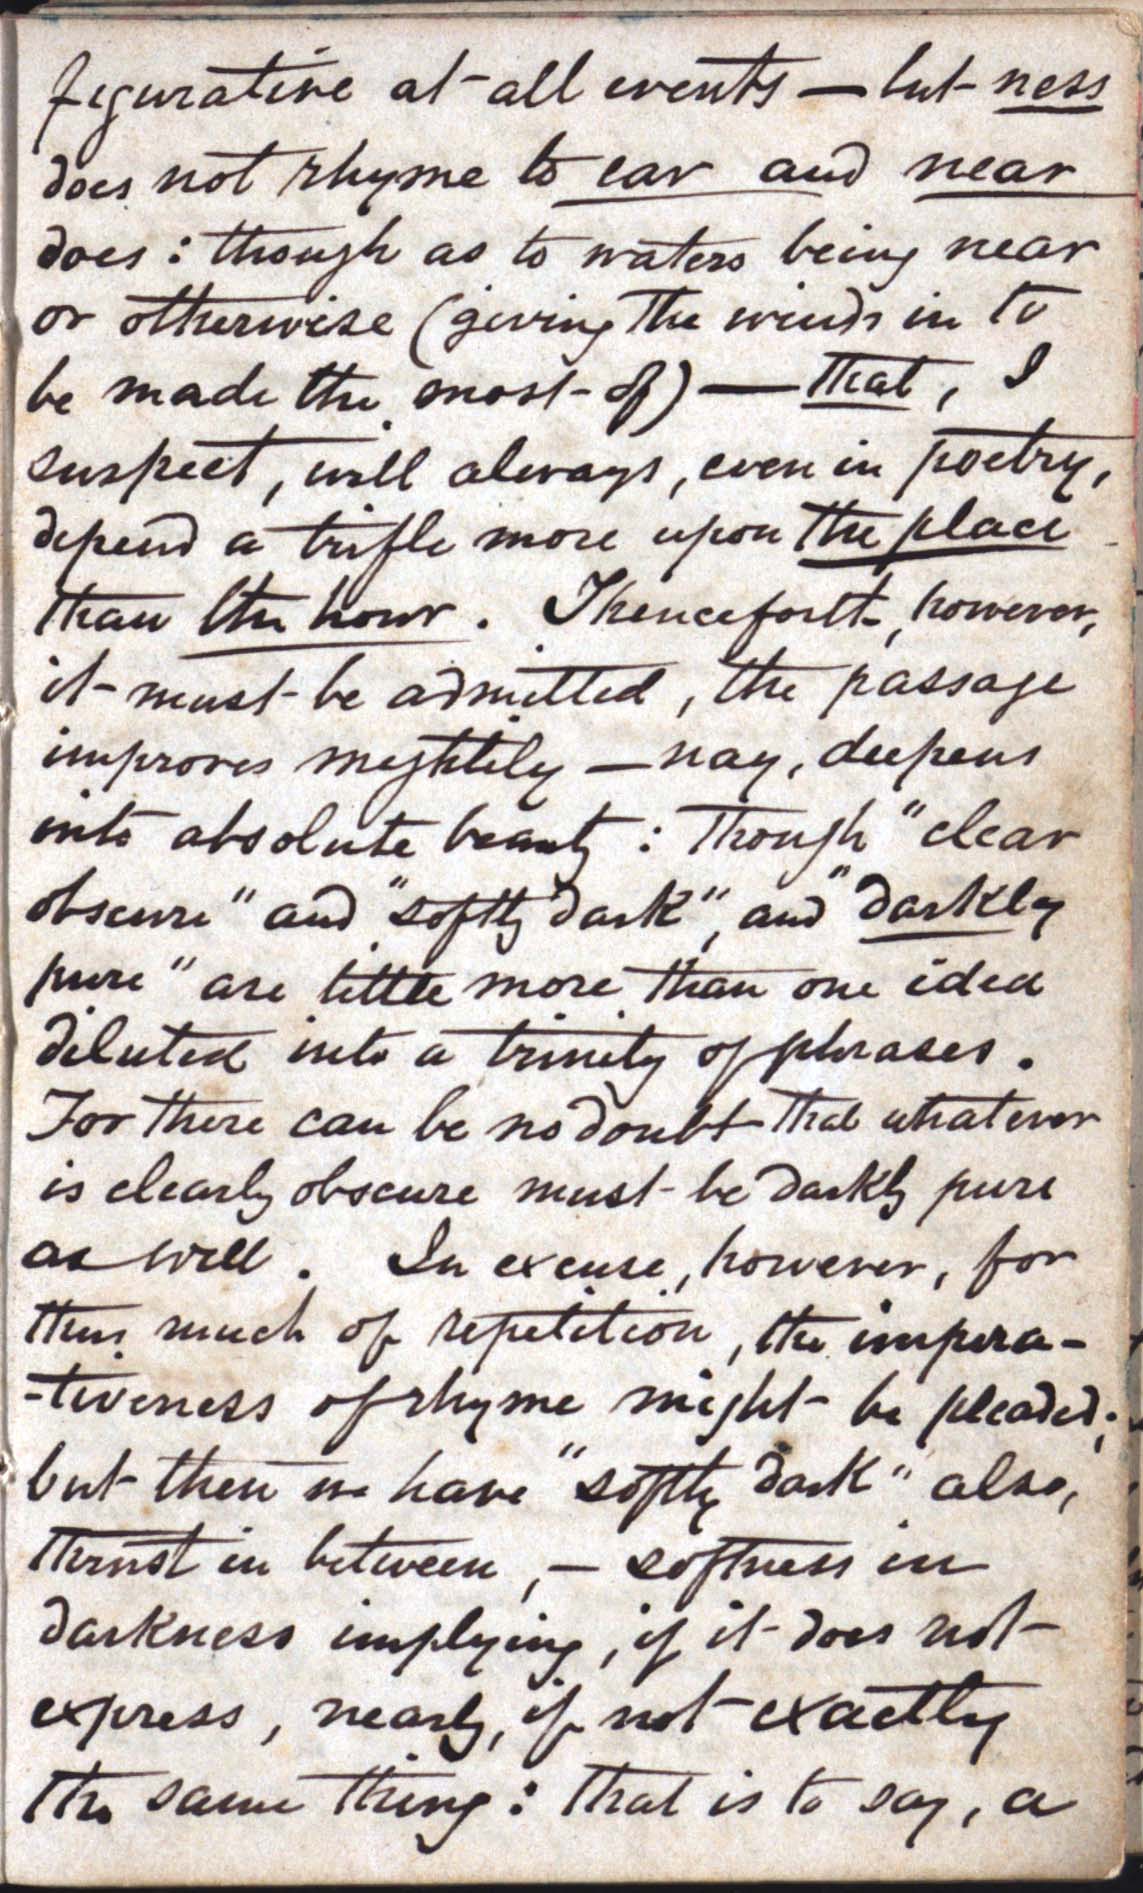 figurative at all events — but ness
does not rhyme to ear and near
does: though as to waters being near
or otherwise (giving the winds in to
be made the most of) — that, I
suspect, will always, even in poetry,
depend a trifle more upon the place
than the hour. Thenceforth, however,
it must be admitted, the passage
improves mightily — nay, deepens
into absolute beauty: though "clear
obscure" and "softly dark", and "darkly
pure" are little more than one idea
diluted into a trinity of phrases.
For there can be no doubt that whatever
is clearly obscure must be darkly pure
as well. In excuse, however, for
thus much of repetition, the impera-
-tiveness of rhyme might be pleaded;
but then we have "softly dark" also,
thrust in between, — softness in
darkness implying, if it does not
express, nearly, if not exactly
the same thing: that is to say, a